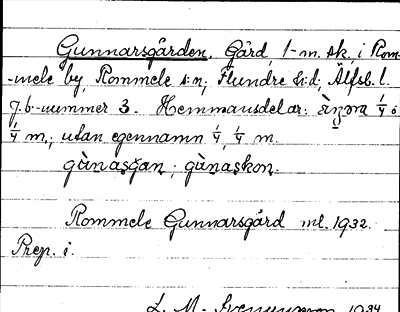 Gunnarsgården, Gård, 1-m. sk, i Rom-
-mele by, Rommele s:n; Flundre h:d; Älfsb. l.
J.b.-nummer 3. Hemmansdelar: 1/4 o
1/4 m.; utan egennamn 1/4, 1/4 m.
gùnasgan; gùnaskon.
Rommele Gunnarsgård ml. 1932.
Prep. i.
L. M. Svensson 1934